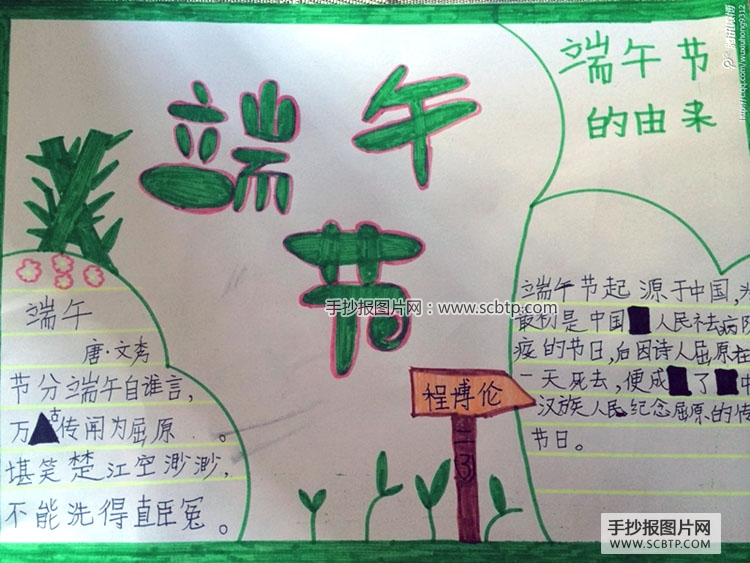 端午节
端午节
的由来
端午
唐·文秀
节分端午自谁言,
万古传闻为屈原。
堪笑楚江空渺渺,
不能洗得直臣冤。
端午节起源于中国,
最初是中国人民祛病防
疫的节日,后因诗人屈原在
一天死去,便成了
汉族人民纪念屈原的传
节日。
程博伦
二
③
手抄报图片网:www.scbtp.com
腾讯微博
http://t.qq.com/wuxiuhong9312
手抄报图片网
WWW.SCBTP.COM